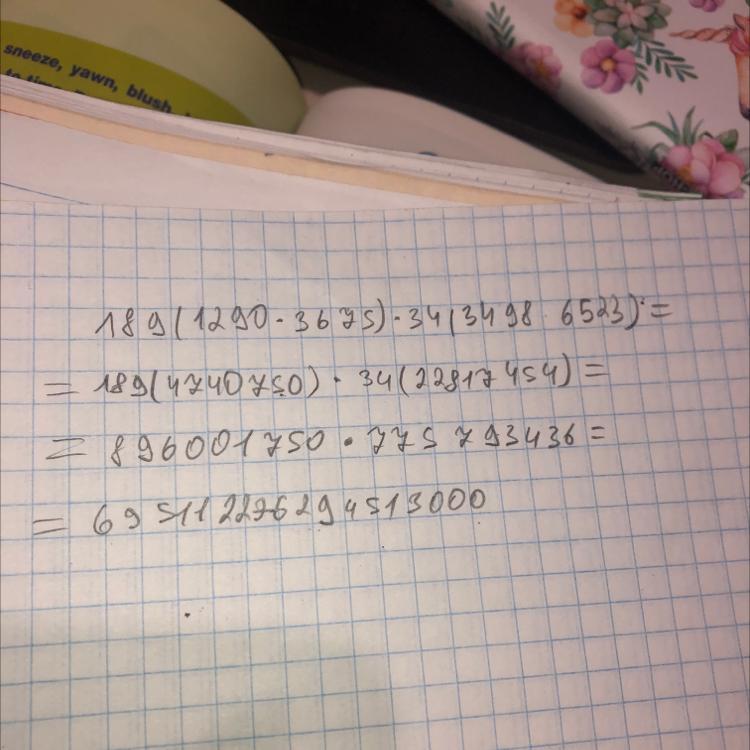 sneeze, yawn, blush,
189(1290·3675)·34(3498·6523)=
=189(4740750)·34(22817454)=
=896001750·775793436=
=695112276294513000